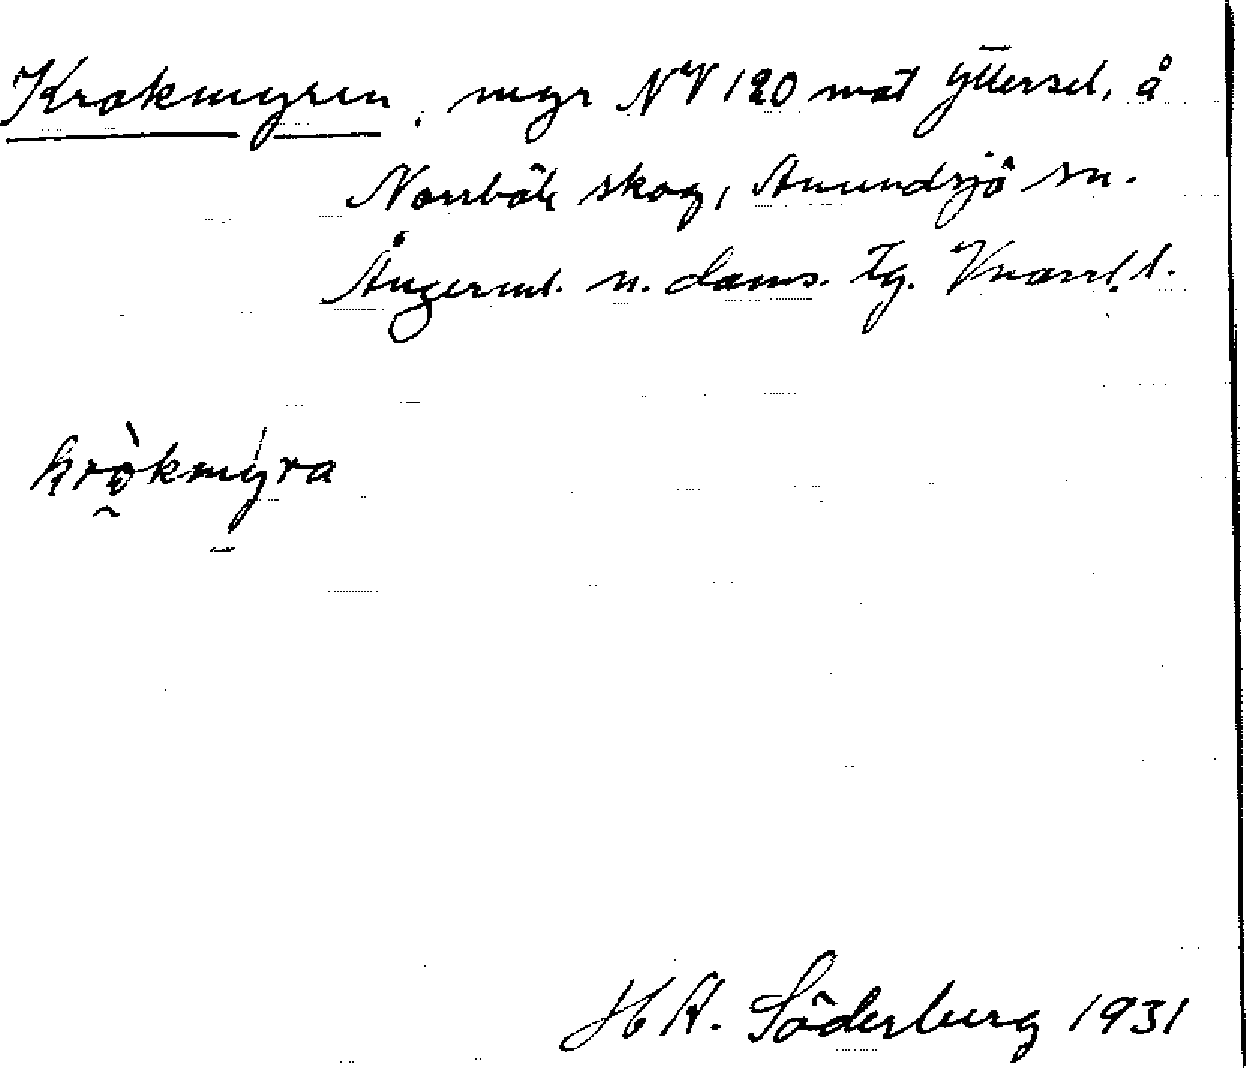 Krokmyren, myr NV 120 mot Yttersel, å
Norrböle skog, Anundsjö sn.
Ångerml. n. doms. Tg. Vnorrl. l.
kròkmýra
H A. Söderberg 1931